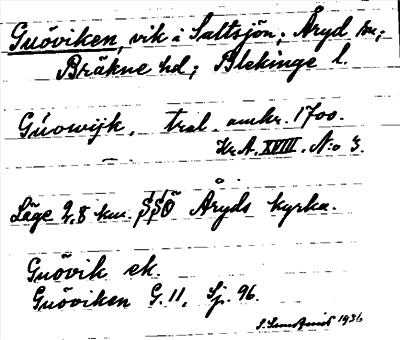 Guöviken, vik i Saltsjön; Åryd sn;
Bräkne hd; Blekinge l.
Gúowijk, tral. omkr. 1700.
Kr.A. XVIII. N:o 3.
Läge 2,8 km. SSÖ Åryds kyrka.
Guövik ek.
Guöviken G. 11, Sj. 96.
1936